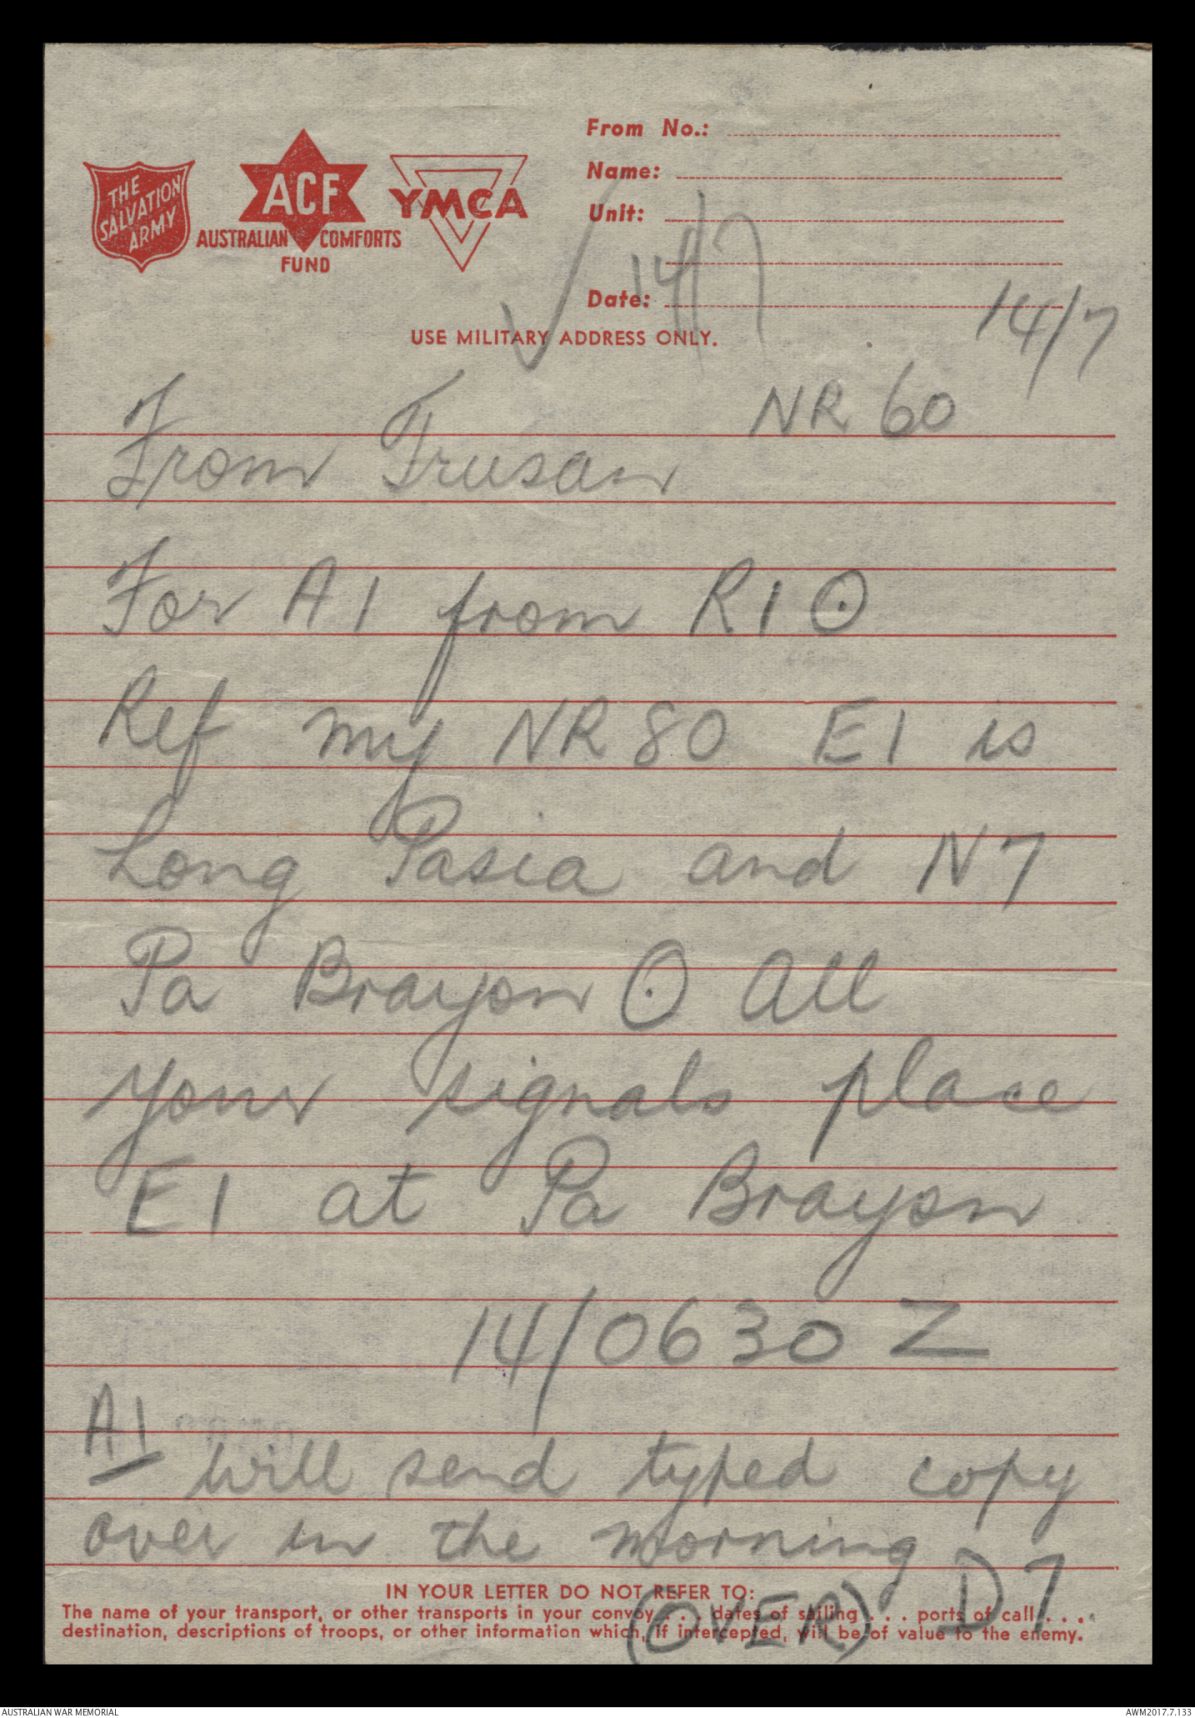 THE
SALVATION
ARMY
ACF
AUSTRALIAN COMFORTS
FUND
YMCA
From No.:
Name:
Unit:
14/7
Date:
USE MILITARY ADDRESS ONLY.
14/7
NR 60
From Trusan
For A1 from R1 O
Ref my NR 80 E1 is
Long Pasia and N7
Pa Brayon O All
your signals place
E1 at Pa Brayon
14/0630 Z
A1
will send typed copy
over in the morning
D7
(OVER)
IN YOUR LETTER DO NOT REFER TO:
The name of your transport, or other transports in your convoy . . . dates of sailing . . . ports of call . . .
destination, descriptions of troops, or other information which, if intercepted, will be of value to the enemy.
AUSTRALIAN WAR MEMORIAL
AWM2017.7.133